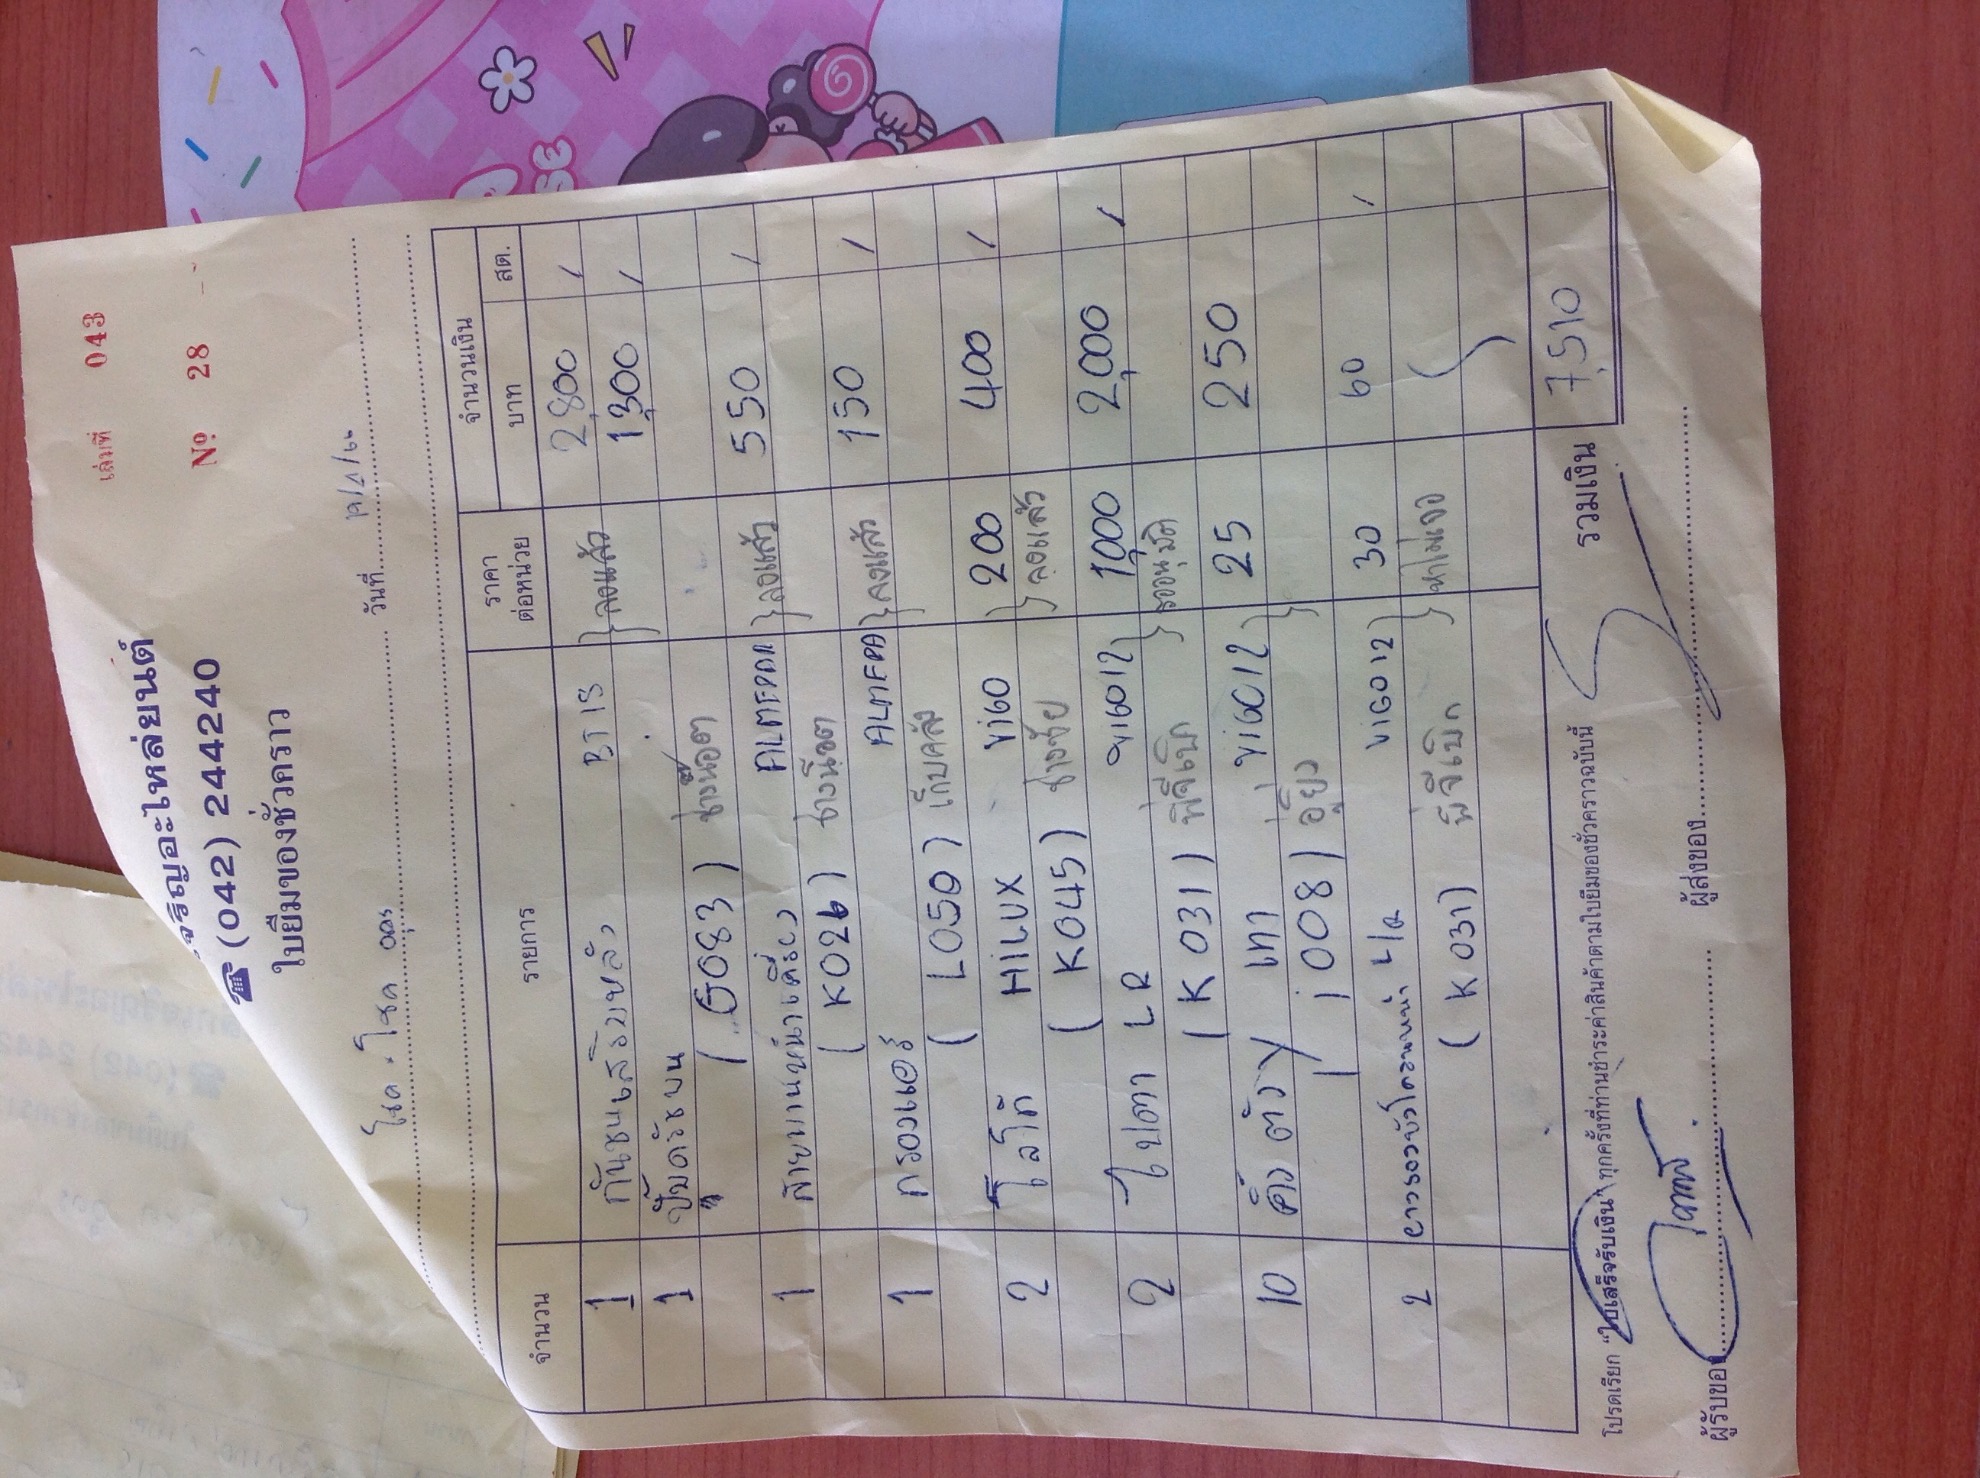 เล่มที่ 043
จริญอะไหล่ยนต์
☎ (042) 244240 Nº 28
ใบยืมของชั่วคราว
โชค . โชค อุดร วันที่
จำนวน รายการ ราคาต่อหน่วย จำนวนเงิน
บาท สต.
1 กันชนเสริมหลัง BT 1S 2,800 /
1 ปั๊มครัชบน } ลงแล้ว 1,300 /
(G083) ช่างนอต
1 สายพานหน้าเครื่อง ALMERA 550 /
(K026) } ลงแล้ว
1 กรองแอร์ ALMERA 150 /
(L050) เก็บคลัง } ลงแล้ว
2 โลโก้ HILUX VIGO 200 400 /
(K045) ช่างชัย } ลงแล้ว
2 ไฟตา LR VIGO12 1,000 2,000 /
(K031) พี่จีเบิก } รออนุมัติ
10 คิ้ว ตัว Y เทา VIGO12 25 250
(i008)
2 ยางรองหัวโครงหน้า L/R VIGO12 30 60 /
(K031) พี่จีเบิก } หาไม่เจอ
รวมเงิน 7,510
โปรดเรียก "ใบเสร็จรับเงิน" ทุกครั้งที่ท่านชำระค่าสินค้าตามใบยืมของชั่วคราวฉบับนี้
ผู้รับของ ผู้ส่งของ